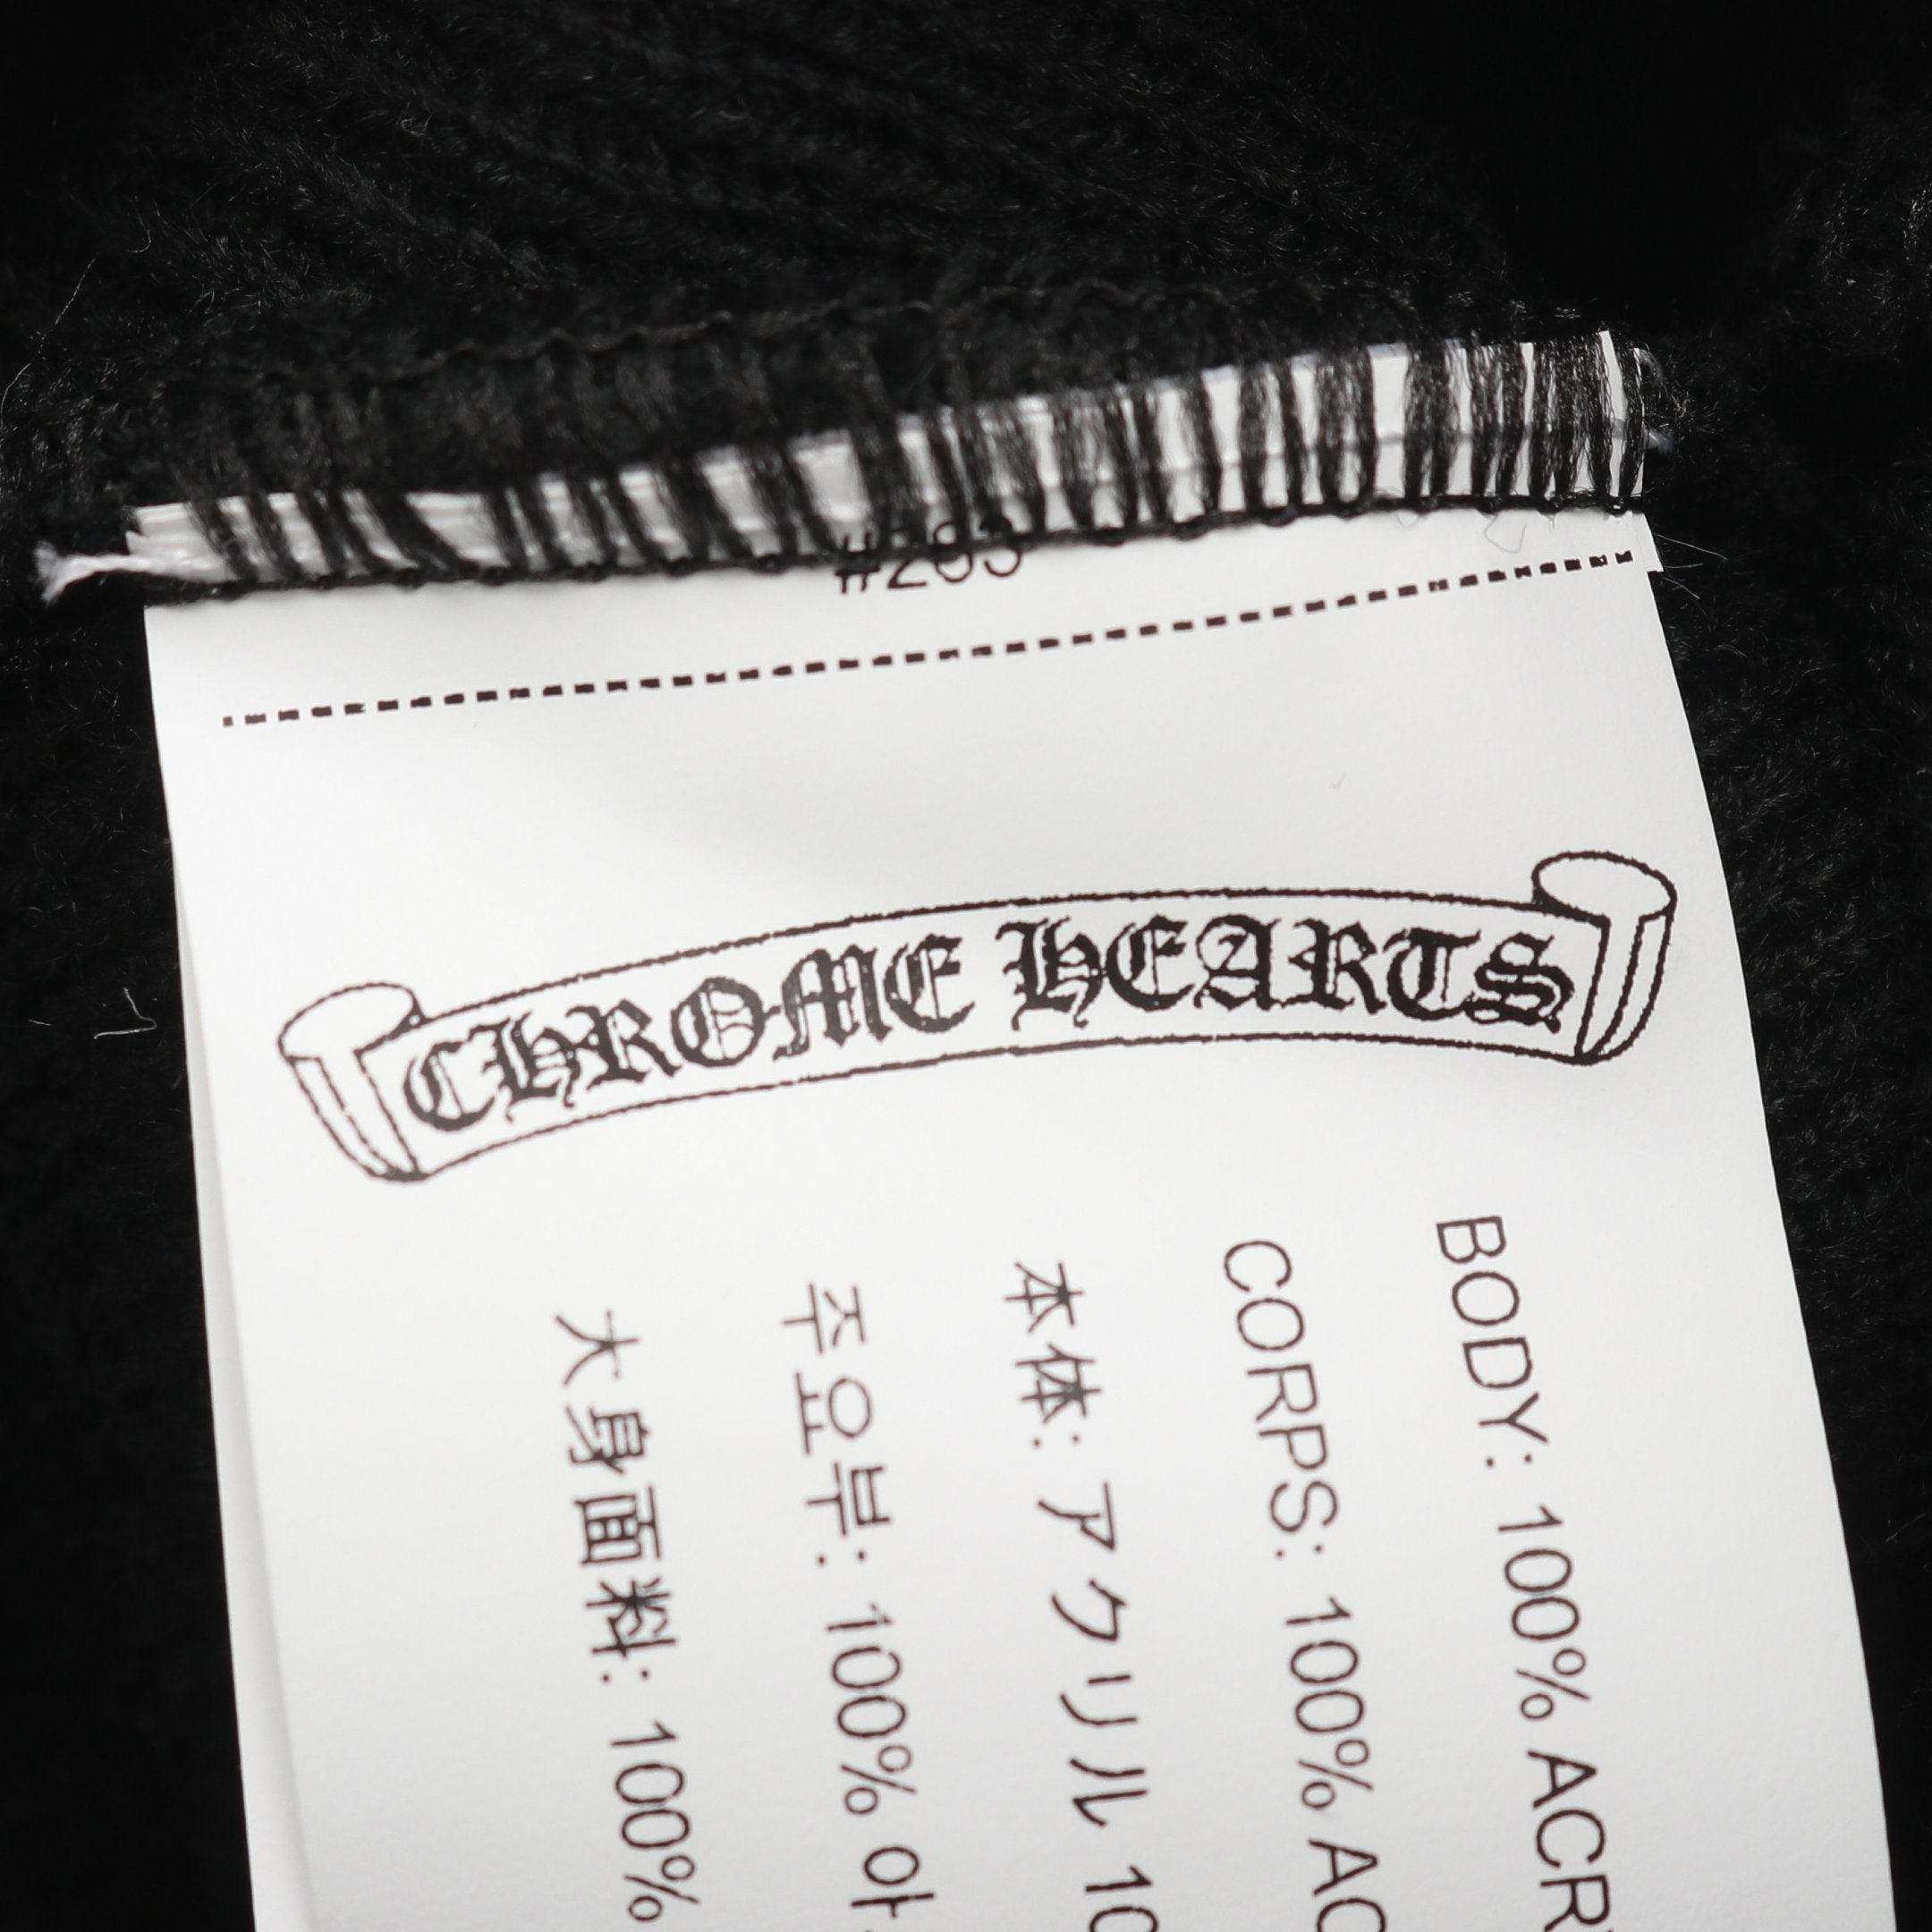 #283
CHROME HEARTS
BODY: 100% ACR
CORPS: 100% AC
本体: アクリル 10
주요부: 100% 아
大身面料: 100%